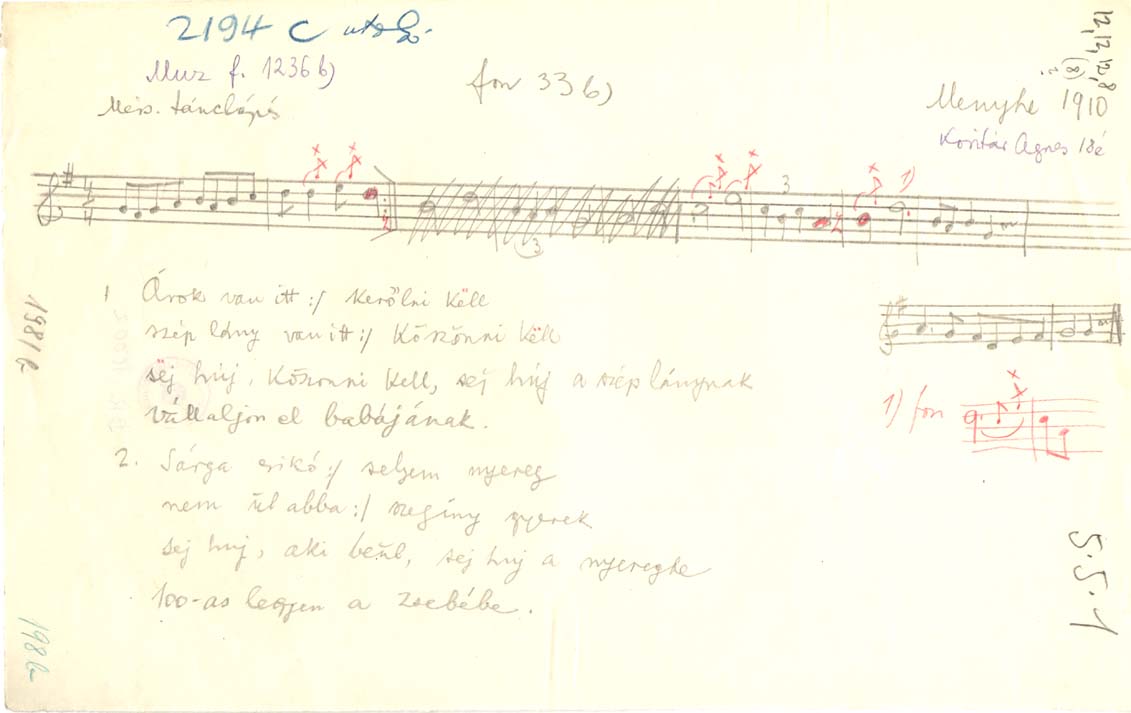 2194 C utolsó
Muz f. 1236 b)
fon 33 b)
12, 12, 12, 8
(8)
?
Mérs. tánclépés
Menyhe 1910
Ágnes 18é
3
3
1)
1 Árok van itt :/ Kerőlni Këll
szép lány van itt :/ Köszönni Këll
sëj húj, Köszönni Kell, sej húj a szép lánynak
vállaljon el babájának.
2. Sárga csikó :/ selyem nyereg
nem űl abba :/ szegíny gyerek
sej huj, aki beűl, sej huj a nyeregbe
100-as legyen a zsebébe.
1) fon
198 b
198 b
5. 5. 1